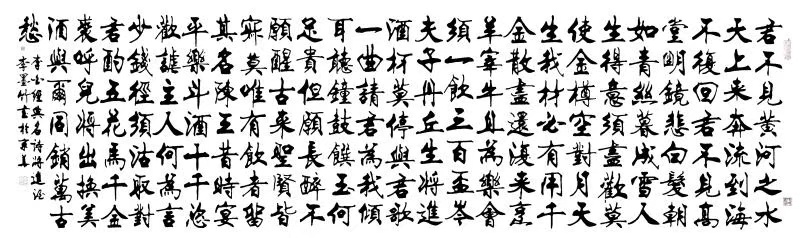 君不見黃河之水
天上來奔流到海
不復回君不見高
堂明鏡悲白髮朝
如青絲暮成雪人
生得意須盡歡莫
使金樽空對月天
生我材必有用千
金散盡還復來烹
羊宰牛且為樂會
須一飲三百盃岑
夫子丹丘生將進
酒杯莫停與君歌
一曲請君為我傾
耳聽鐘鼓饌玉何
足貴但願長醉不
願醒古來聖賢皆
寂莫唯有飲者留
其名陳王昔時宴
平樂斗酒十千恣
歡謔主人何為言
少錢徑須沽取對
君酌五花馬千金
裘呼兒將出換美
酒與爾同銷萬古
愁
李白經典名詩將進酒
李墨竹書於京華